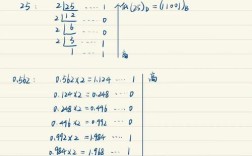 25: 2|25 ···· 1 (25)D = (11001)B
2|12 ···· 0
2|6 ···· 0
2|3 ···· 1
1 ···· 1 高
0.562: 0.562×2=1.124 ···· 1 高
0.124×2=0.248 ···· 0
0.248×2=0.496 ·· 0
0.496×2=0.992 ·· 0
0.992×2=1.984 ···· 1
0.984×2=1.968 ···· 1